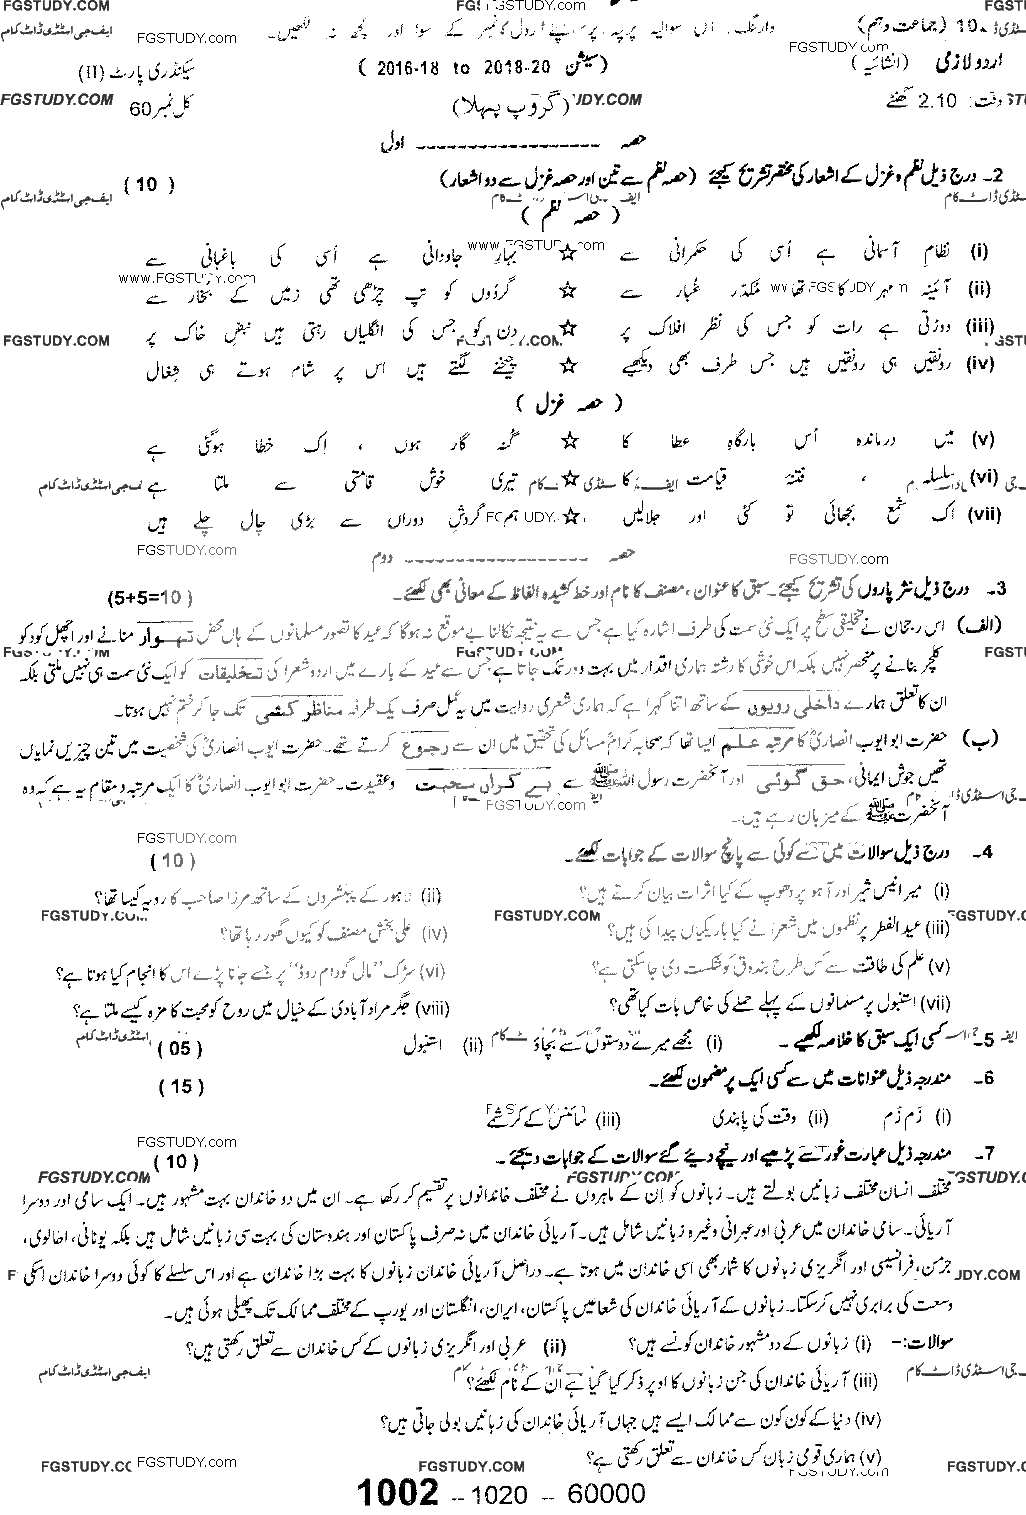 FGSTUDY.COM FGSTUDY.COM FGST
وارننگ۔ اس سوالیہ پرچہ پر اپنے رول نمبر کے سوا اور کچھ نہ لکھیں۔ (جماعت دہم) 10
FGSTUDY.com FGSTUDY.com ایف جی اسٹڈی ڈاٹ کام
اردو لازمی (انشائیہ) (سیشن 2018-20 to 2016-18) سیکنڈری پارٹ (II)
وقت: 2.10 گھنٹے (گروپ پہلا) کل نمبر 60
حصہ ------------------ اول
2- درج ذیل نظم و غزل کے اشعار کی مختصر تشریح کیجئے (حصہ نظم سے تین اور حصہ غزل سے دو اشعار) ( 10 )
( حصہ نظم )
(i) نظامِ آسمانی ہے اُسی کی حکمرانی سے ☆ بہارِ جاودانی ہے اُسی کی باغبانی سے
www.FGSTUDY.com
(ii) آئینہ مہر کا تھا مکدّر غبار سے ☆ گردُوں کو تپ چڑھی تھی زمیں کے بخار سے
(iii) دوڑتی ہے رات کو جس کی نظر افلاک پر ☆ دن کو جس کی انگلیاں رہتی ہیں نبضِ خاک پر
(iv) رونقیں ہی رونقیں ہیں جس طرف بھی دیکھیے ☆ چیخنے لگتے ہیں اس پر شام ہوتے ہی شغال
( حصہ غزل )
(v) میں درماندہ اُس بارگاہِ عطا کا ☆ گنہ گار ہوں ، اک خطا ہوگئی ہے
(vi) سلسلہ ، فتنۂ قیامت کا ☆ تیری خوش قامتی سے ملتا ہے
(vii) اک شمع بجھائی تو کئی اور جلالیں ☆ ہم گردشِ دوراں سے بڑی چال چلے ہیں
FGSTUDY.com حصہ ------------------ دوم FGSTUDY.com
3- درج ذیل نثر پاروں کی تشریح کیجئے۔ سبق کا عنوان، مصنف کا نام اور خط کشیدہ الفاظ کے معانی بھی لکھئے۔ (5+5=10 )
(الف) اس رجحان نے تخلیقی سطح پر ایک نئی سمت کی طرف اشارہ کیا ہے جس سے یہ نتیجہ نکالنا بے موقع نہ ہوگا کہ عید کا تصور مسلمانوں کے ہاں محض تہوار منانے اور اچھل کود کو
کلچر بنانے پر منحصر نہیں بلکہ اس خوشی کا رشتہ ہماری اقدار میں بہت دور تک جاتا ہے جس سے عید کے بارے میں اردو شعرا کی تخلیقات کو ایک نئی سمت ہی نہیں ملتی بلکہ
ان کا تعلق ہمارے داخلی رویوں کے ساتھ اتنا گہرا ہے کہ ہماری شعری روایت میں یہ عمل صرف یک طرفہ مناظر کشی تک جا کر ختم نہیں ہوتا۔
(ب) حضرت ابو ایوب انصاریؓ کا مرتبہ علم ایسا تھا کہ صحابہ کرامؓ مسائل کی تحقیق میں ان سے رجوع کرتے تھے۔ حضرت ایوب انصاریؓ کی شخصیت میں تین چیزیں نمایاں
تھیں جوش ایمانی، حق گوئی اور آنحضرت رسول اللہﷺ سے بے کراں محبت و عقیدت۔ حضرت ابو ایوب انصاریؓ کا ایک مرتبہ و مقام یہ ہے کہ وہ
آنحضرتﷺ کے میزبان رہے ہیں۔
4- درج ذیل سوالات میں سے کوئی سے پانچ سوالات کے جوابات لکھئے۔ ( 10 )
(i) میر انیس شیر اور آہو پر دھوپ کے کیا اثرات بیان کرتے ہیں؟ (ii) لاہور کے پبلشروں کے ساتھ مرزا صاحب کا رویہ کیسا تھا؟
(iii) عید الفطر پر نظموں میں شعرا نے کیا باریکیاں پیدا کی ہیں؟ (iv) علی بخش مصنف کو کیوں گھور رہا تھا؟
(v) علم کی طاقت سے کس طرح بندوق کو شکست دی جا سکتی ہے؟ (vi) سڑک "مال گودام روڈ" پر جسے جانا پڑے اس کا انجام کیا ہوتا ہے؟
(vii) استنبول پر مسلمانوں کے پہلے حملے کی خاص بات کیا تھی؟ (viii) جگر مراد آبادی کے خیال میں روح کو محبت کا مزہ کیسے ملتا ہے؟
5- کسی ایک سبق کا خلاصہ لکھیے۔ (i) مجھے میرے دوستوں سے بچاؤ (ii) استنبول ( 05 )
6- مندرجہ ذیل عنوانات میں سے کسی ایک پر مضمون لکھئے۔ ( 15 )
(i) زم زم (ii) وقت کی پابندی (iii) سائنس کے کرشمے
FGSTUDY.com
7- مندرجہ ذیل عبارت غور سے پڑھیے اور نیچے دیئے گئے سوالات کے جوابات دیجئے۔ ( 10 )
مختلف انسان مختلف زبانیں بولتے ہیں۔ زبانوں کو اِن کے ماہروں نے مختلف خاندانوں پر تقسیم کر رکھا ہے۔ ان میں دو خاندان بہت مشہور ہیں۔ ایک سامی اور دوسرا
آریائی۔ سامی خاندان میں عربی اور عبرانی وغیرہ زبانیں شامل ہیں۔ آریائی خاندان میں نہ صرف پاکستان اور ہندوستان کی بہت سی زبانیں شامل ہیں بلکہ یونانی، اطالوی،
جرمن، فرانسیسی اور انگریزی زبانوں کا شمار بھی اسی خاندان میں ہوتا ہے۔ دراصل آریائی خاندان زبانوں کا بہت بڑا خاندان ہے اور اس سلسلے کا کوئی دوسرا خاندان اسکی
وسعت کی برابری نہیں کر سکتا۔ زبانوں کے آریائی خاندان کی شعاعیں پاکستان، ایران، انگلستان اور یورپ کے مختلف ممالک تک پھیلی ہوئی ہیں۔
سوالات:- (i) زبانوں کے دو مشہور خاندان کونسے ہیں؟ (ii) عربی اور انگریزی زبانوں کے کس خاندان سے تعلق رکھتی ہیں؟
(iii) آریائی خاندان کی جن زبانوں کا اوپر ذکر کیا گیا ہے اُن کے نام لکھئے؟
(iv) دنیا کے کون کون سے ممالک ایسے ہیں جہاں آریائی خاندان کی زبانیں بولی جاتی ہیں؟
(v) ہماری قومی زبان کس خاندان سے تعلق رکھتی ہے؟
1002 -- 1020 -- 60000